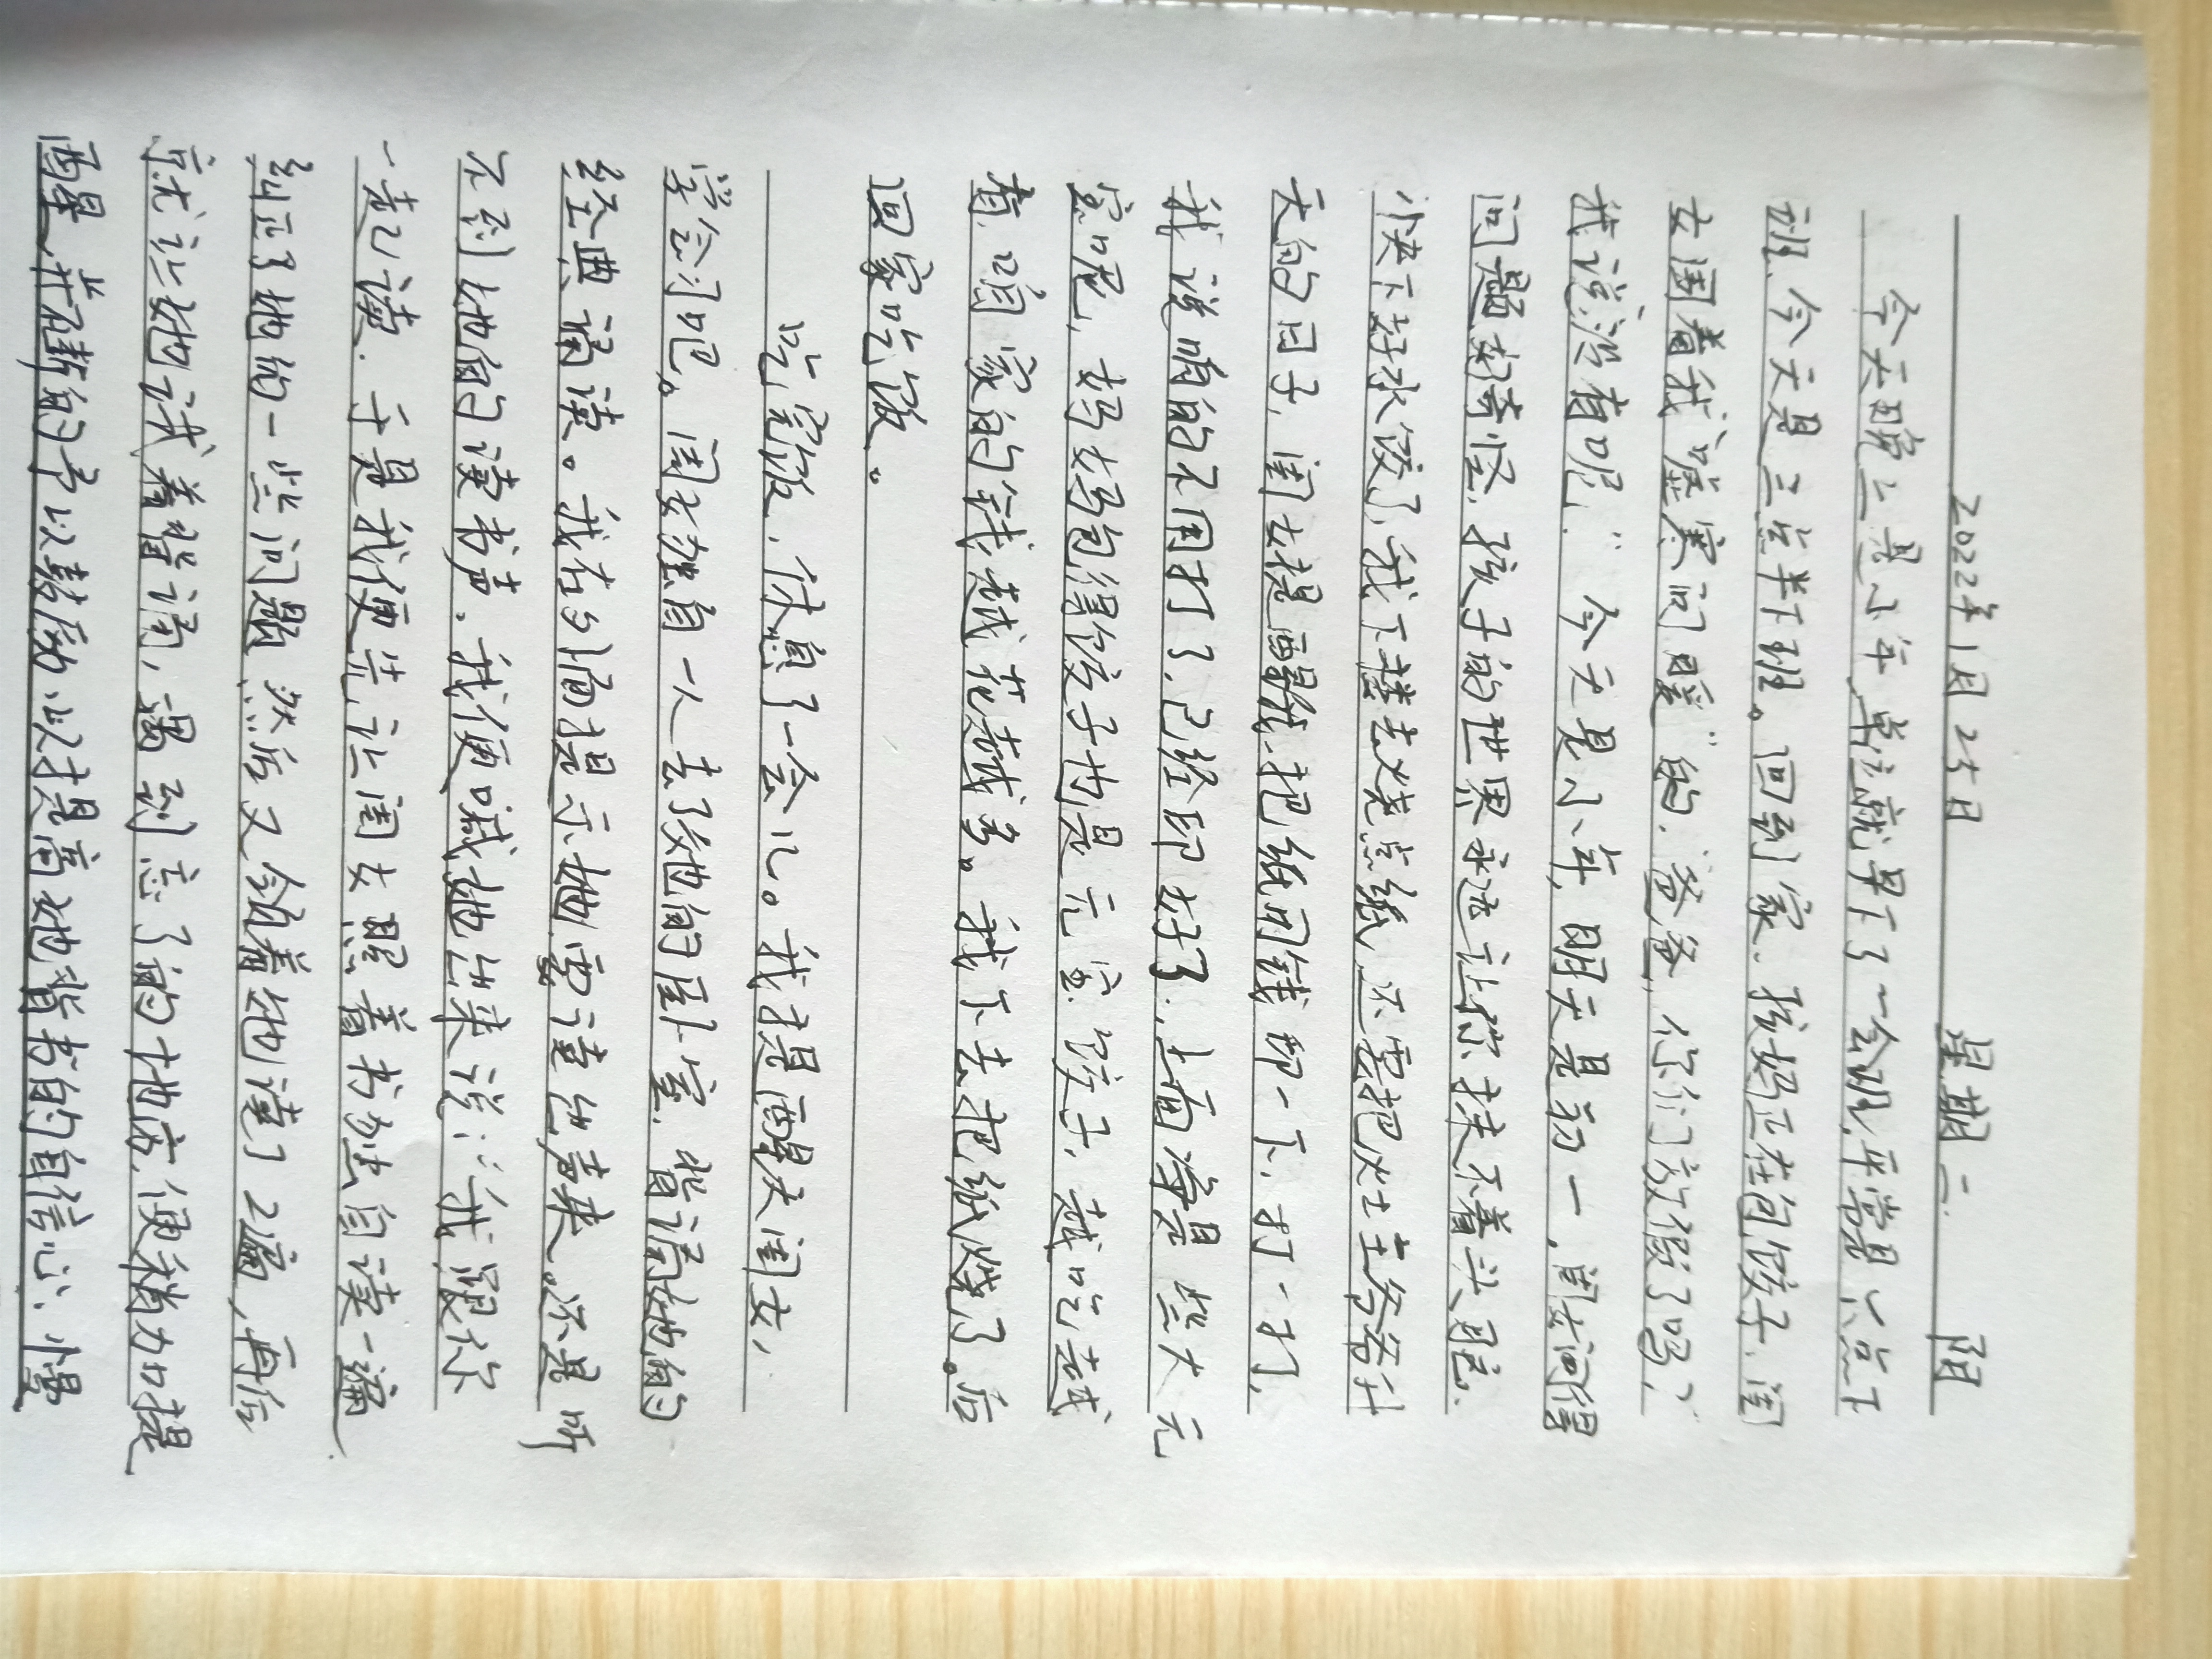 2022年1月25日 星期二 阴
今天晚上是小年,单位就早下了一会班,平常是六点下
班,今天是三点半下班。回到家,孩妈正在包饺子,闺
女围着我“嘘寒问暖”的,“爸爸,你们放假了吗?”
我说没有呢!”今天是小年,明天是初一,闺女问得
问题好奇怪,孩子的世界永远让你找不着头绪。
快下好水饺了,我下楼去烧点纸,还要把灶王爷爷升
天的日子,闺女提醒我,把纸用钱印一下,打一打,
我说咱的不用打了,已经印好了,上面净是些大元
宝呢,妈妈包得饺子也是元宝饺子,越吃越
有,咱家的钱越花越多。我下去把纸烧了。后
回家吃饭。
吃完饭,休息了一会儿。我提醒大闺女,
学会习吧。闺女独自一人去了她的卧室,背诵她的
经典诵读。我在外面提示她,要读出声来,还是听
不到她的读书声,我便喊她出来说:“我跟你
一起读。于是我便先让闺女照着书独自读一遍
纠正了她的一些问题,然后又领着她读了2遍,再后
就让她试着背诵,遇到忘了的地方,便稍加提
醒,并不断的予以鼓励,以提高她背书的自信心,小慢